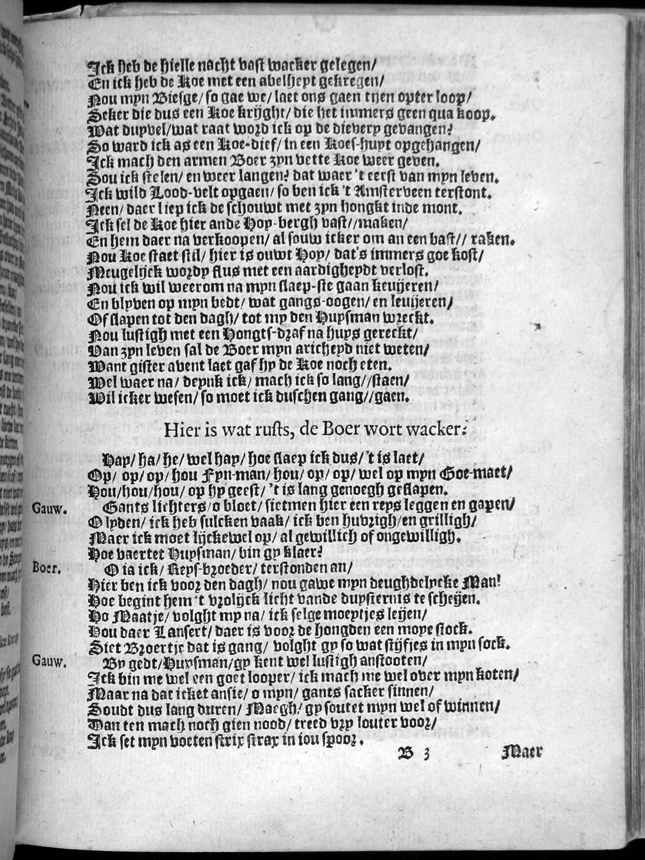 Ick heb de hielle nacht vast wacker gelegen/
En ick heb de Koe met een abelheyt gekregen/
Nou myn Biesge/ so gae we/ laet ons gaen tyen opter loop/
Seker die dus een Koe kryght/ die het immers geen qua koop.
Wat duyvel/wat raat word ick op de dievery gevangen?
So ward ick as een Koe-dief/ in een Koes-huyt opgehangen/
Ick mach den armen Boer zyn vette Koe weer geven.
Sou ick stelen/ en weer langen? dat waer't eerst van myn leven.
Ick wild Lood-velt opgaen/ so ben ick 't Amsterveen terstont.
Neen/ daer liep ick de schouwt met zyn hongkt inde mont.
Ick sel de Koe hier ande Hop-bergh vast//maken/
En hem daer na verkoopen/ al souw icker om an een bast// raken.
Nou Koe staet stil/ hier is ouwt Hoy/ dat's immers goe kost/
Meugelijck wordy flus met een aardigheydt verlost.
Nou ick wil weerom na myn slaep-ste gaan keuijeren/
En blyven op myn bedt/ wat gangs-oogen/ en leuijeren/
Of slapen tot den dagh/ tot my den Huysman wreckt.
Nou lustigh met een Hongts-draf na huys gereckt/
Van zyn leven sal de Boer myn aricheyd niet weten/
Want gister avent laet gaf hy de Koe noch eten.
Wel waer na/ deynk ick/ mach ick so lang//staen/
Wil icker wesen/ so moet ick duschen gang//gaen.
Hier is wat rusts, de Boer wort wacker.
Hay/ ha/ he/ wel hay/ hoe slaep ick dus/ 't is laet/
Op/ op/ op/ hou Fyn-man/ hou/ op/ op/ wel op myn Goe-maet/
Hou/hou/hou/ op hy geest/ 't is lang genoegh geslapen.
Gauw. Gants lichters/ o bloet/ sietmen hier een reys leggen en gapen/
Olyden/ ick heb sulcken vaak/ ick ben huvrigh/en grilligh/
Maer ick moet lyckewel op/ al gewillich of ongewilligh.
Hoe vaertet Huysman/ bin gy klaer?
Boer. O ia ick/ Reys-broeder/ terstonden an/
Hier ben ick voor den dagh/ nou gawe myn deughdelycke Man!
Hoe begint hem 't vrolyck licht vande duysternis te scheyen.
Ho Maatje/ volght my na/ ick selge moeytjes leyen/
Hou daer Lansert/ daer is voor de hongden een moye stock.
Siet Broertje dat is gang/ volght gy so wat styfjes in myn sock.
Gauw. By gedt/Huysman/gy kent wel lustigh anstooten/
Ick bin me wel een goet looper/ ick mach me wel over myn koten/
Maar na dat icket ansie/ o myn/ gants sacker sinnen/
Soudt dus lang duren/ Maegh/ gy soutet myn wel of winnen/
Dan ten mach noch gien nood/ treed vry louter voor/
Ick set myn voeten strix strax in iou spoor.
B 3 Maer